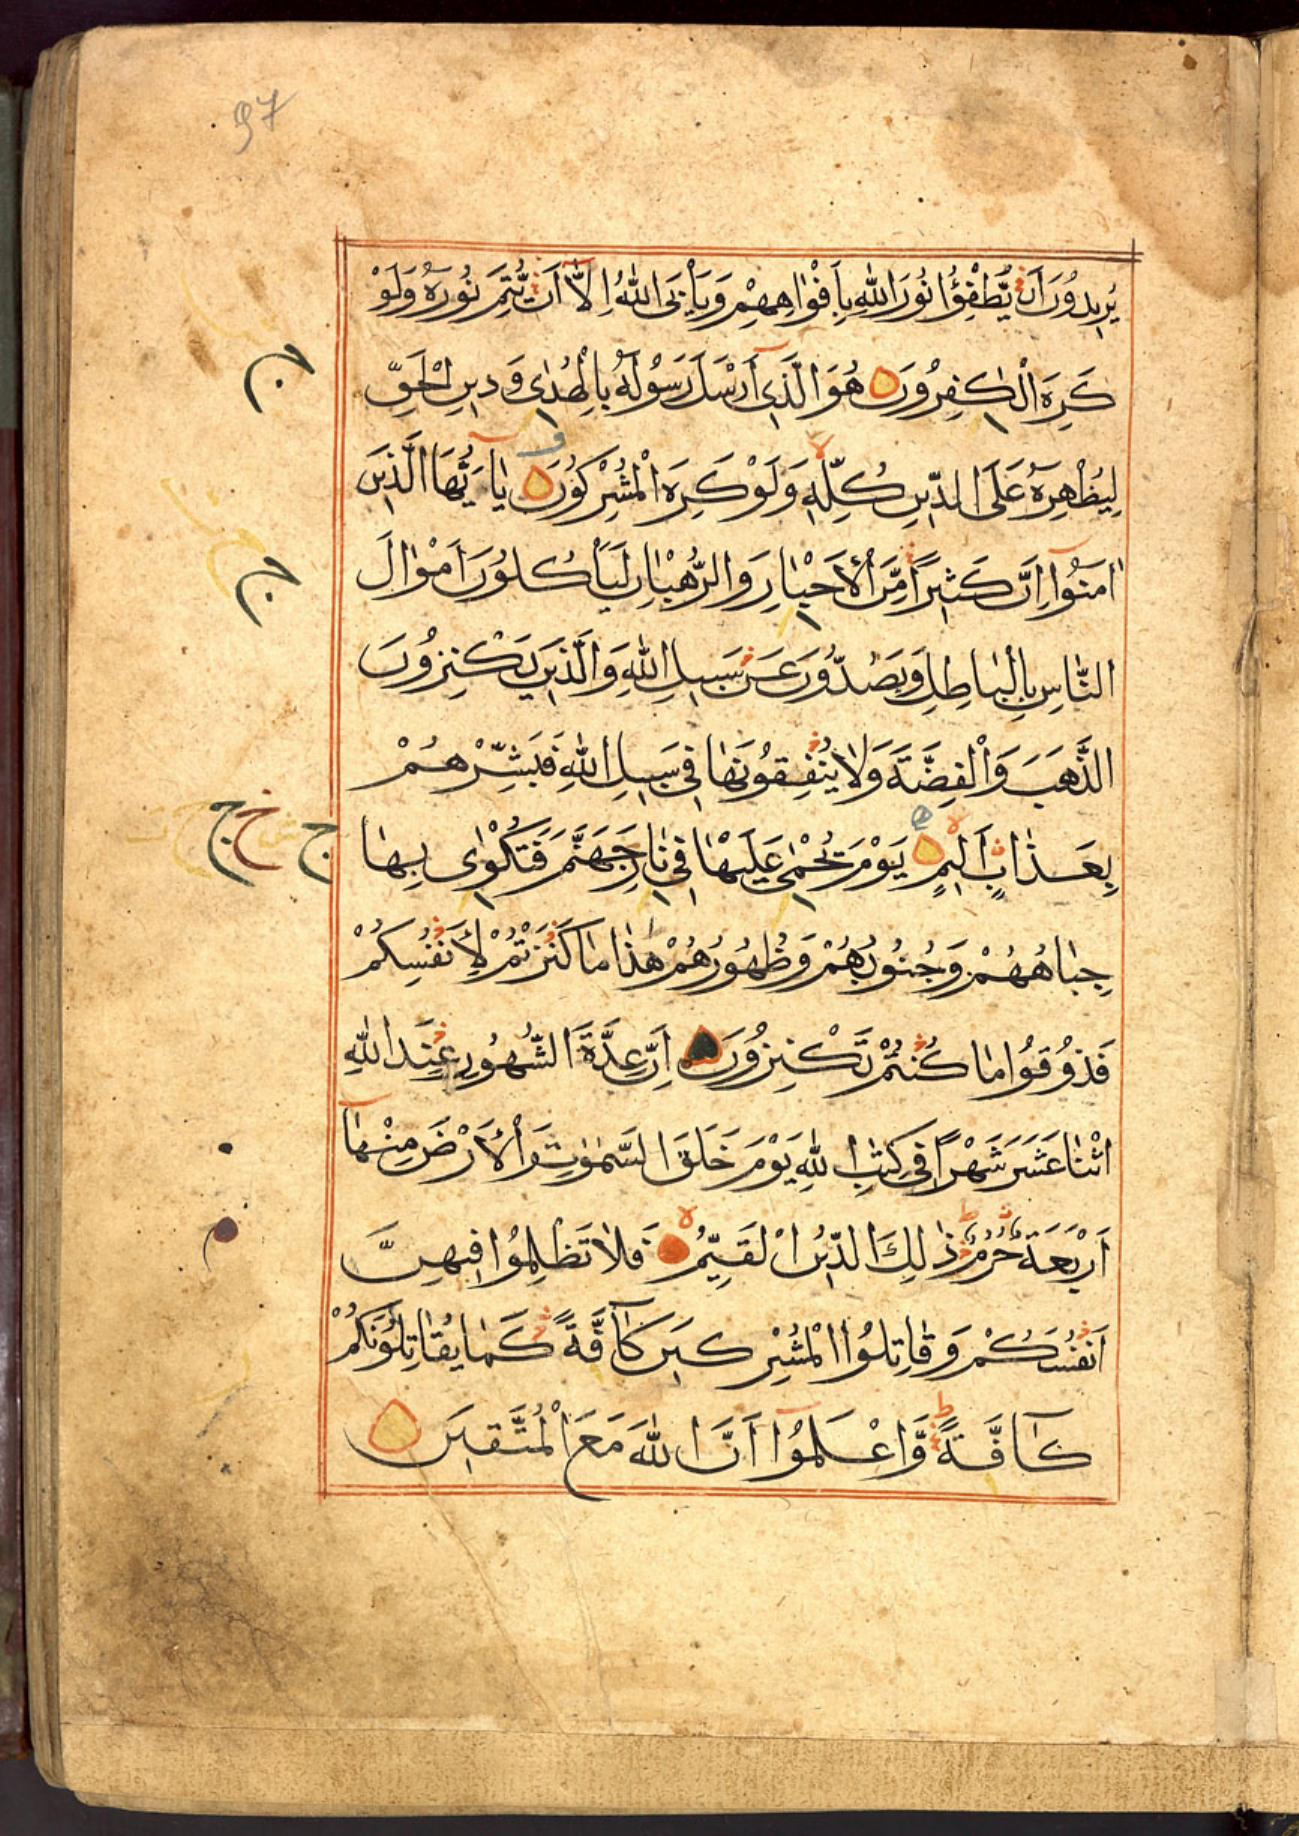 97
يُرِيدُونَ اَنْ يُّطْفِؤُا نُورَ اللّٰهِ بِاَفْوَاهِهِمْ وَيَاْبَى اللّٰهُ اِلَّا اَنْ يُّتِمَّ نُورَهُ وَلَوْ
كَرِهَ الْكٰفِرُونَ هُوَ الَّذِى اَرْسَلَ رَسُولَهُ بِالْهُدٰى وَدِينِ الْحَقِّ
لِيُظْهِرَهُ عَلَى الدِّينِ كُلِّهِ وَلَوْ كَرِهَ الْمُشْرِكُونَ يَا اَيُّهَا الَّذِينَ
اٰمَنُوا اِنَّ كَثِيرًا مِّنَ الْاَحْبَارِ وَالرُّهْبَانِ لَيَاْكُلُونَ اَمْوَالَ
النَّاسِ بِالْبَاطِلِ وَيَصُدُّونَ عَنْ سَبِيلِ اللّٰهِ وَالَّذِينَ يَكْنِزُونَ
الذَّهَبَ وَالْفِضَّةَ وَلَا يُنْفِقُونَهَا فِى سَبِيلِ اللّٰهِ فَبَشِّرْهُمْ
بِعَذَابٍ اَلِيمٍ يَوْمَ يُحْمٰى عَلَيْهَا فِى نَارِ جَهَنَّمَ فَتُكْوٰى بِهَا
جِبَاهُهُمْ وَجُنُوبُهُمْ وَظُهُورُهُمْ هٰذَا مَا كَنَزْتُمْ لِاَنْفُسِكُمْ
فَذُوقُوا مَا كُنْتُمْ تَكْنِزُونَ اِنَّ عِدَّةَ الشُّهُورِ عِنْدَ اللّٰهِ
اثْنَا عَشَرَ شَهْرًا فِى كِتٰبِ اللّٰهِ يَوْمَ خَلَقَ السَّمٰوٰتِ وَالْاَرْضَ مِنْهَا
اَرْبَعَةٌ حُرُمٌ ذٰلِكَ الدِّينُ الْقَيِّمُ فَلَا تَظْلِمُوا فِيهِنَّ
اَنْفُسَكُمْ وَقَاتِلُوا الْمُشْرِكِينَ كَافَّةً كَمَا يُقَاتِلُونَكُمْ
كَافَّةً وَّاعْلَمُوا اَنَّ اللّٰهَ مَعَ الْمُتَّقِينَ